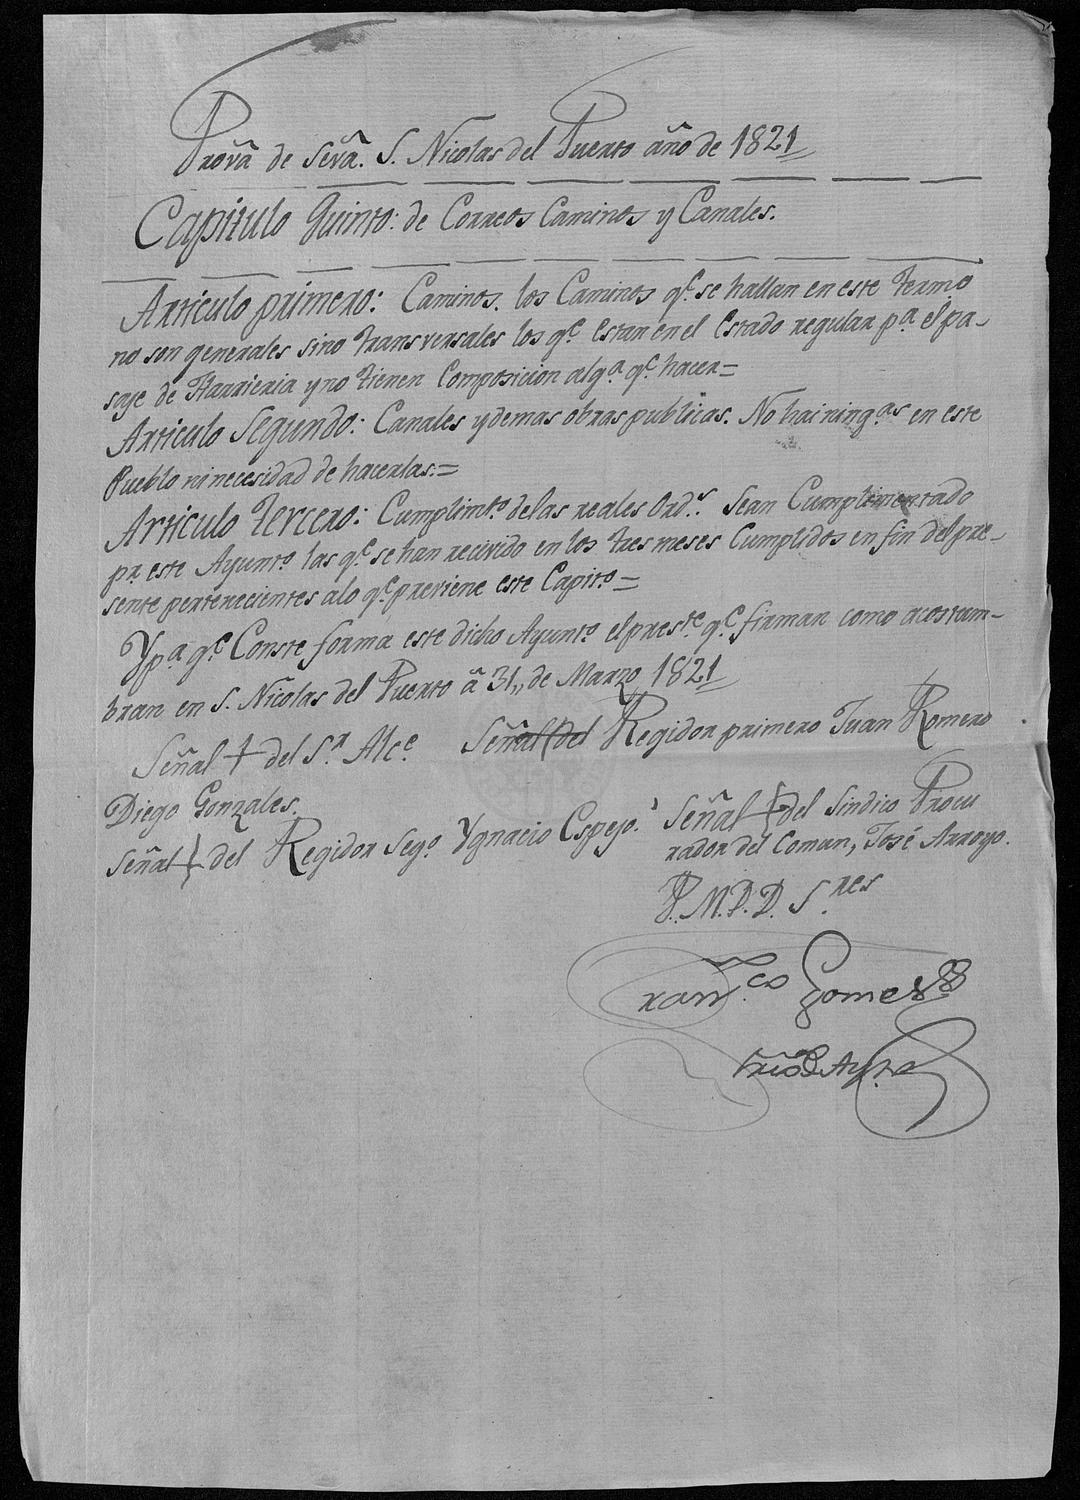 Prov.ª de Sev.ª S. Nicolas del Puerto año de 1821
Capitulo Quinto: de Correos Caminos y Canales.
Articulo primero: Caminos. los Caminos q.e se hallan en este Termo
no son generales sino transversales los q.e estan en el Estado regular p.ª el pa-
saje de Harrieria y no tienen Composicion alg.ª q.e hacer=
Articulo Segundo: Canales y demas obras publicas. No hai ning.as en este
Pueblo ni necesidad de hacerlas:=
Articulo tercero: Cumplim.to de las reales Ord.s Sean Cumplimentado
p.r este Ayunt.o las q.e se han recivido en los tres meses Cumplidos en fin del pre-
sente pertenecientes a lo q.e previene este Capit.o=
Y p.ª q.e Conste forma este dicho Ayunt.o el pres.te q.e firman como acostum-
bran en S. Nicolas del Puerto á 31,, de Marzo 1821
Señal + del S.r Alc.e Señal + del Regidor primero Juan Romero
Diego Gonzales.
Señal + del Regidor Seg.o Ygnacio Espejo. Señal + del Sindico Procu
rador del Comun, José Arroyo.
P. M. D. D. S.res
Fran.co Gomez
Srio D Ay.to